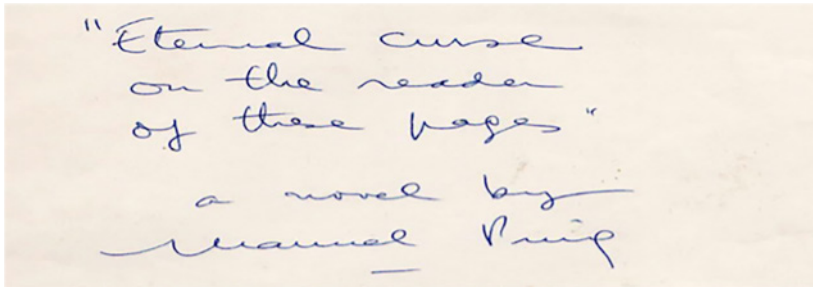 "Eternal curse
on the reader
of these pages"
a novel by
Manuel Puig